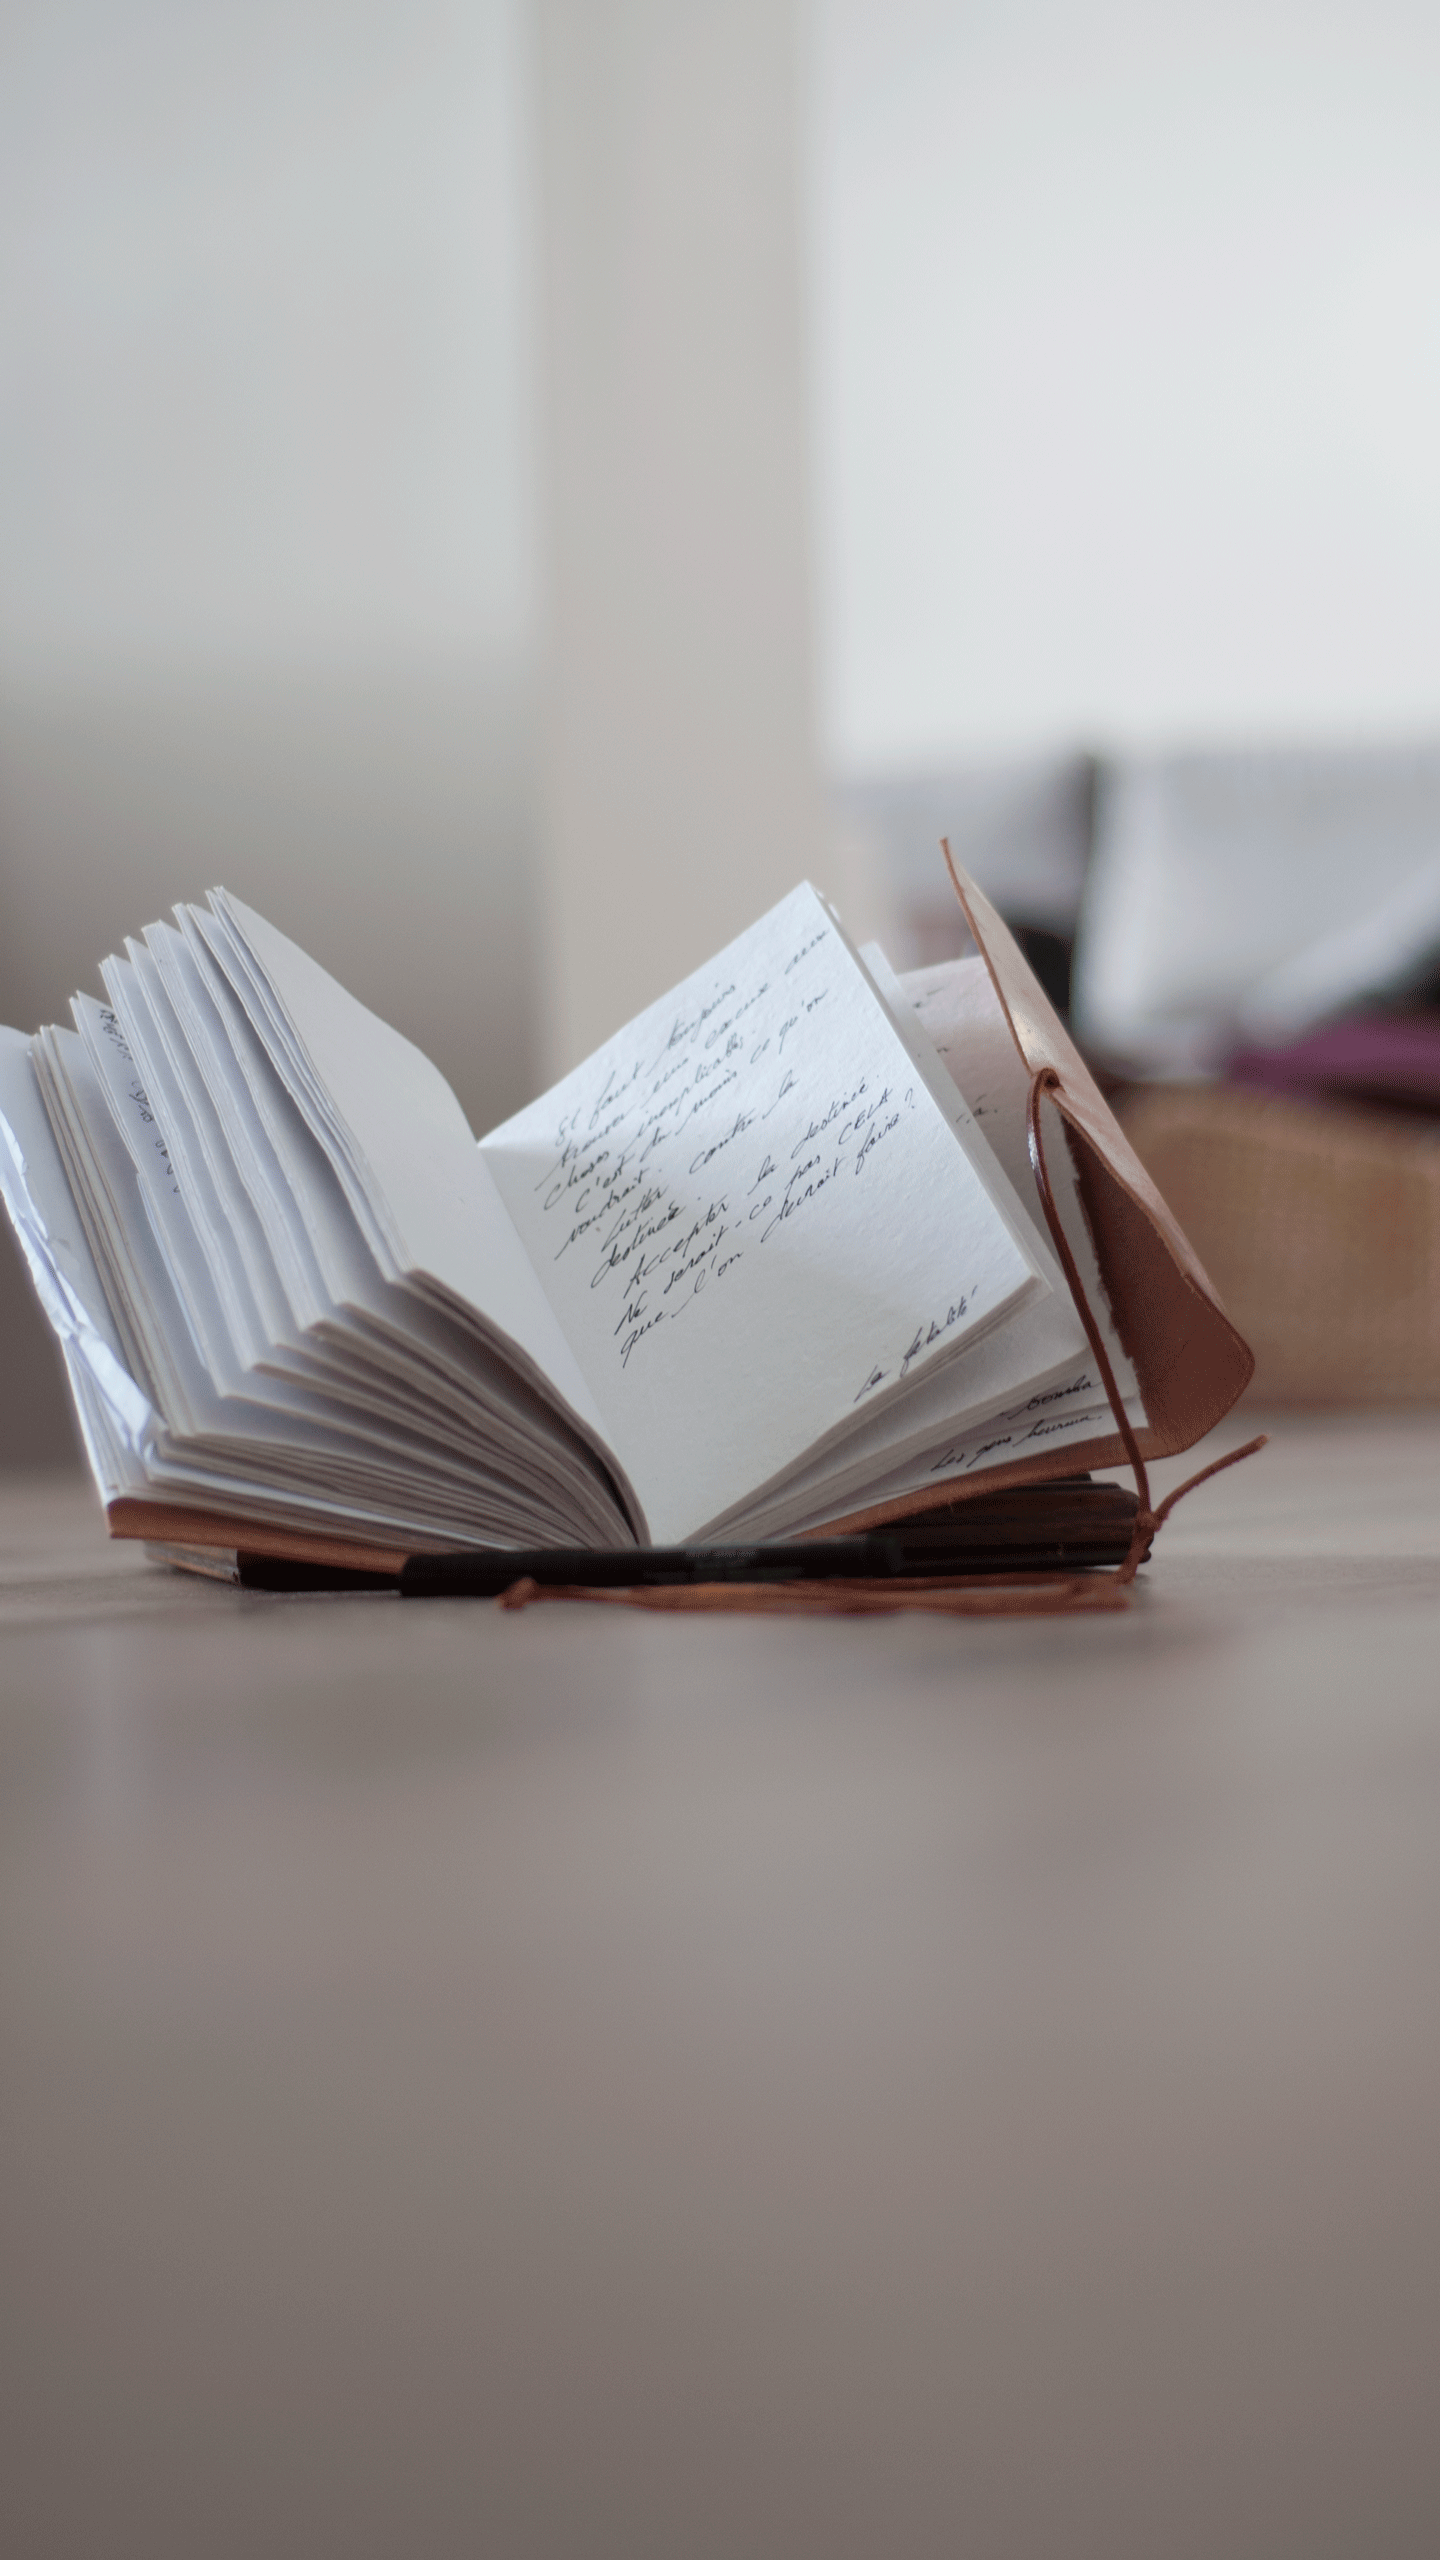 Il faut toujours
trouver une cause aux
choses inexplicables.
C'est du moins ce qu'on
voudrait.
Lutter contre la
destinée.
Accepter la destinée.
Ne serait-ce pas CELA
que l'on devrait faire ?
La fatalité
tomba
Les gens heureux